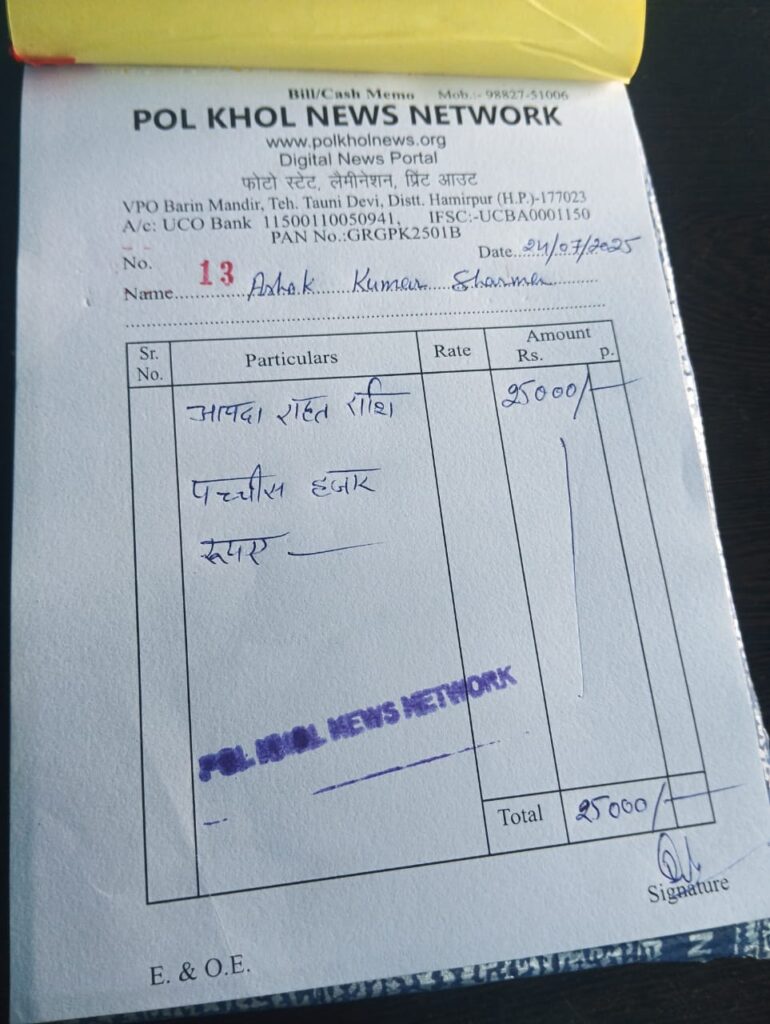 Bill/Cash Memo Mob.:- 98827-51006
POL KHOL NEWS NETWORK
www.polkholnews.org
Digital News Portal
फोटो स्टेट, लैमीनेशन, प्रिंट आउट
VPO Barin Mandir, Teh. Tauni Devi, Distt. Hamirpur (H.P.)-177023
A/c: UCO Bank 11500110050941, IFSC:-UCBA0001150
PAN No.:GRGPK2501B
No. 13 Date 24/07/2025
Name Ashok Kumar Sharma
Sr. No. Particulars Rate Amount Rs. p.
आपदा राहत राशि 25000/-
पच्चीस हजार
रूपए
POL KHOL NEWS NETWORK
Total 25000/-
Signature
E. & O.E.